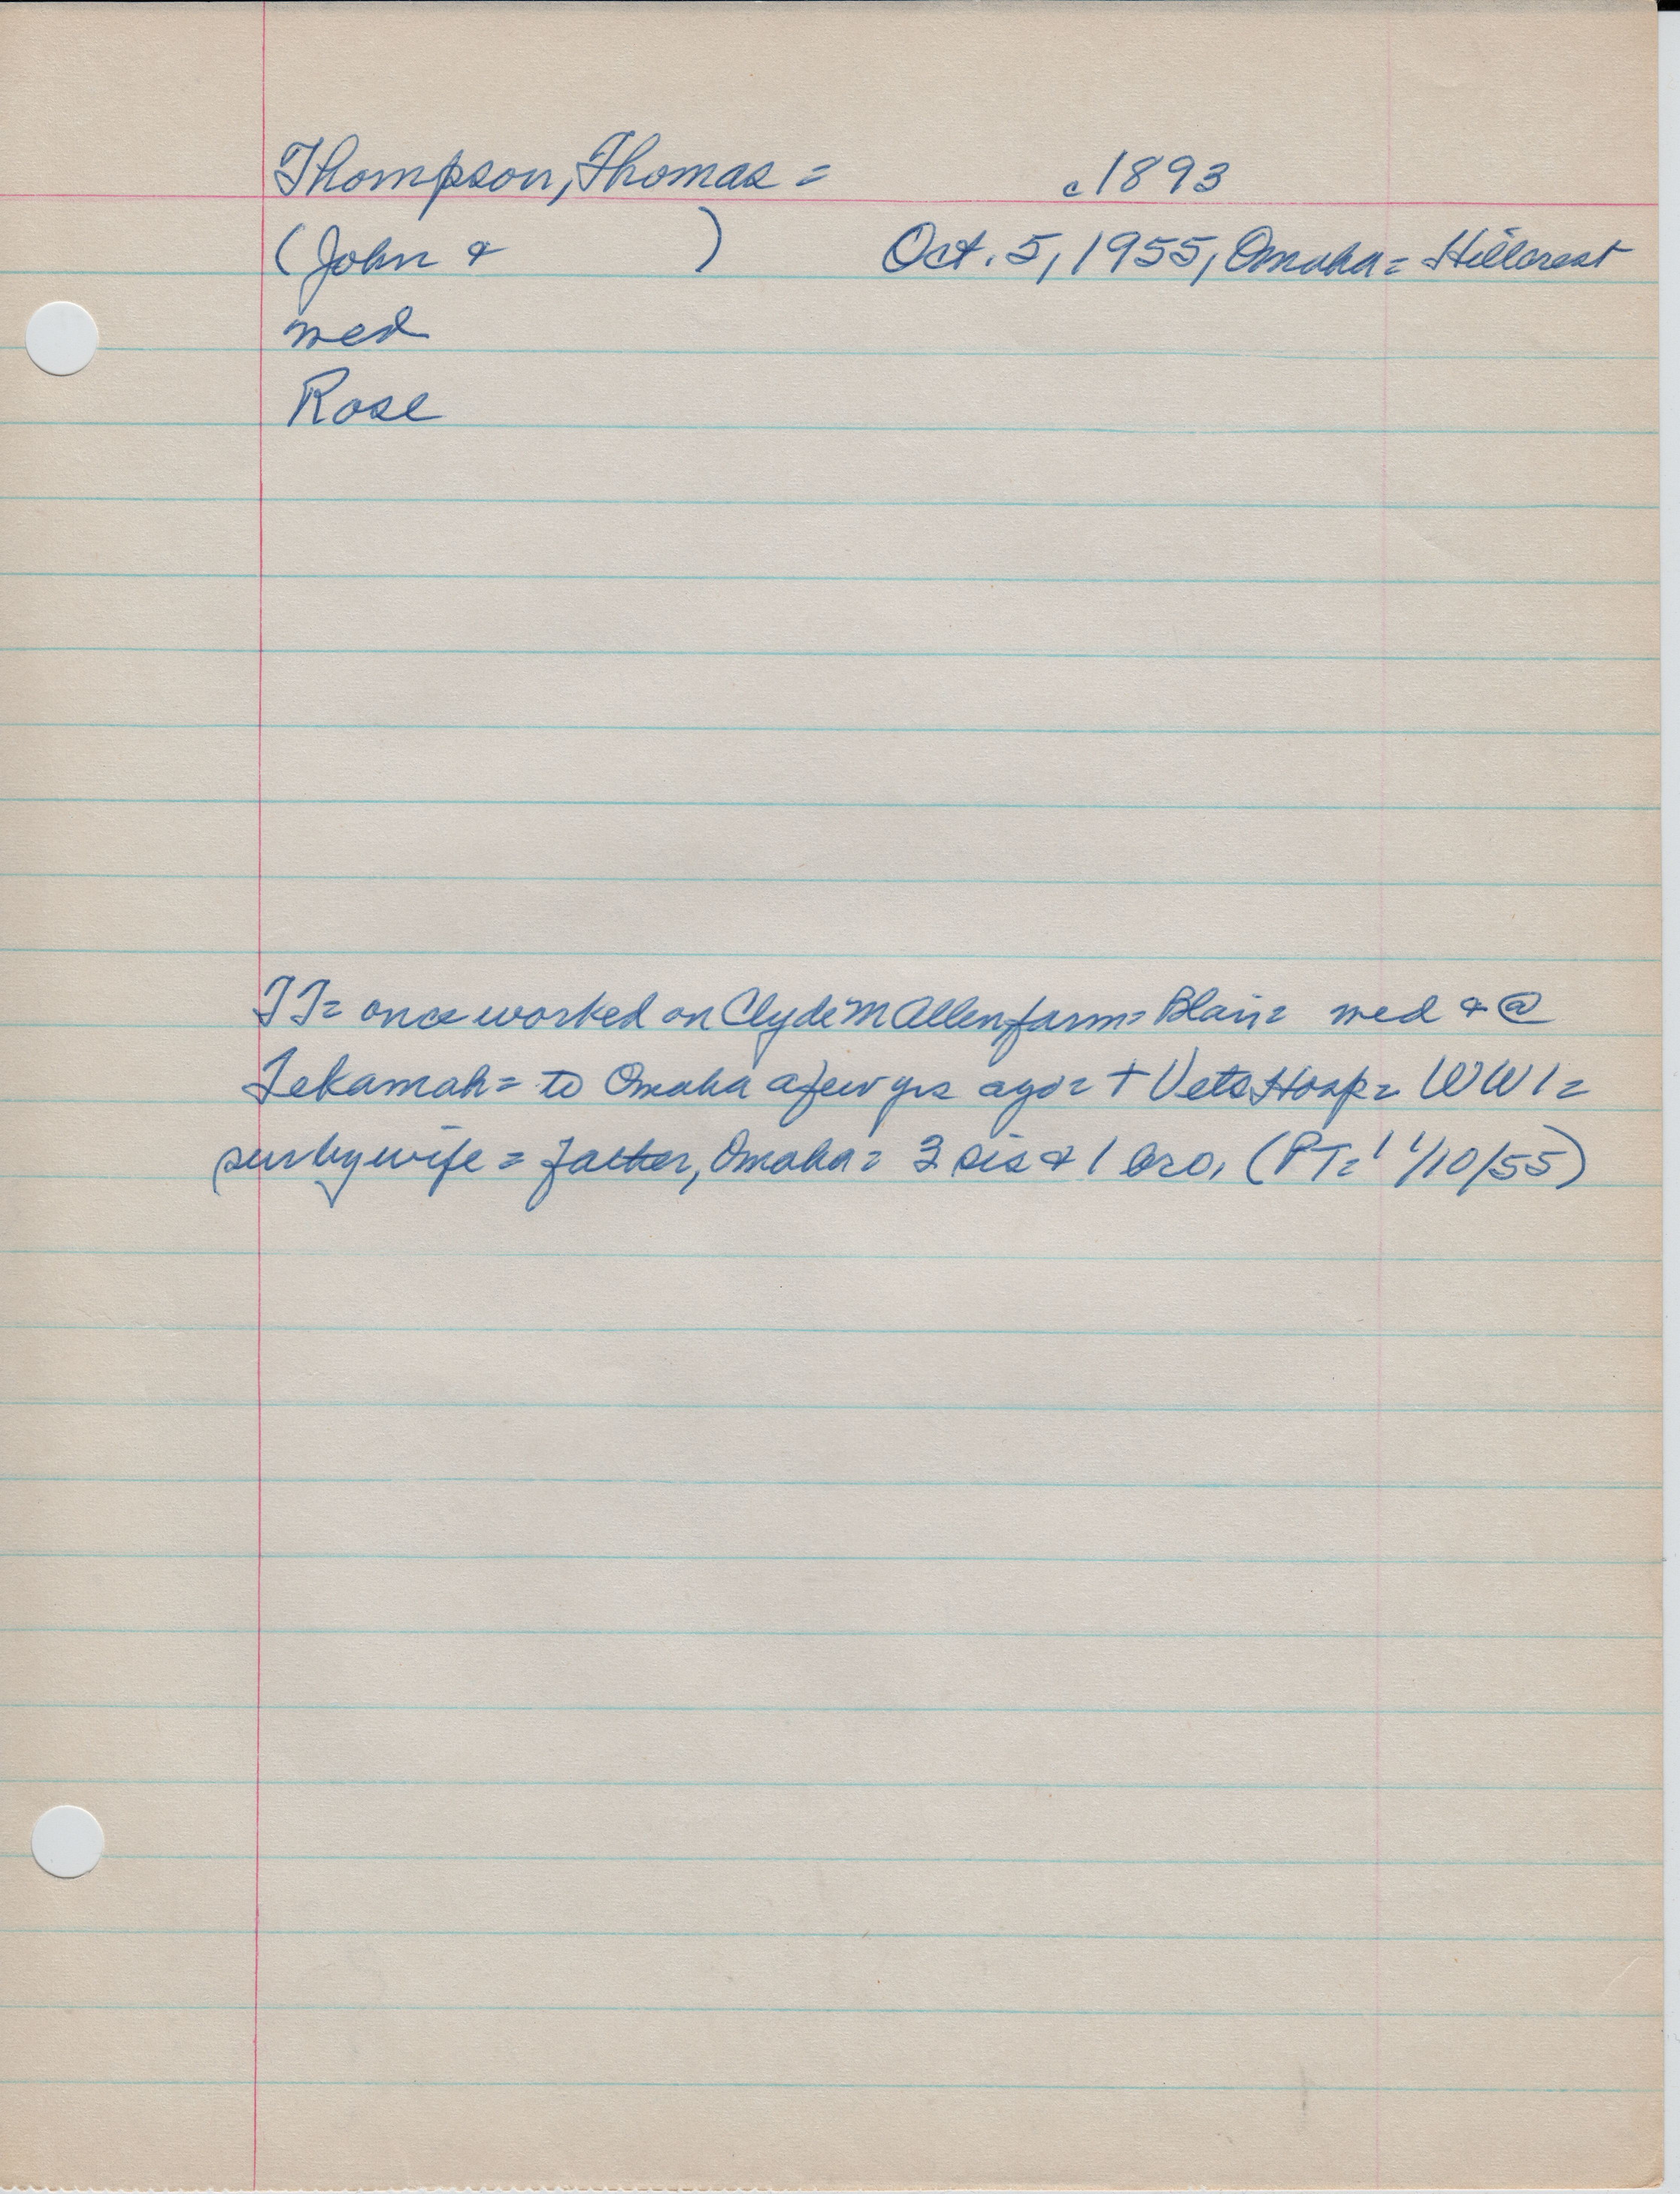 Thompson, Thomas = c1893
(John &        ) Oct. 5, 1955, Omaha = Hillcrest
med
Rose
TT= once worked on Clyde M Allen farm= Blair= med & @
Tekamah= to Omaha a few yrs ago= + Vets Hosp= WW1=
sur by wife = father, Omaha= 3 sis & 1 bro. (PT= 11/10/55)